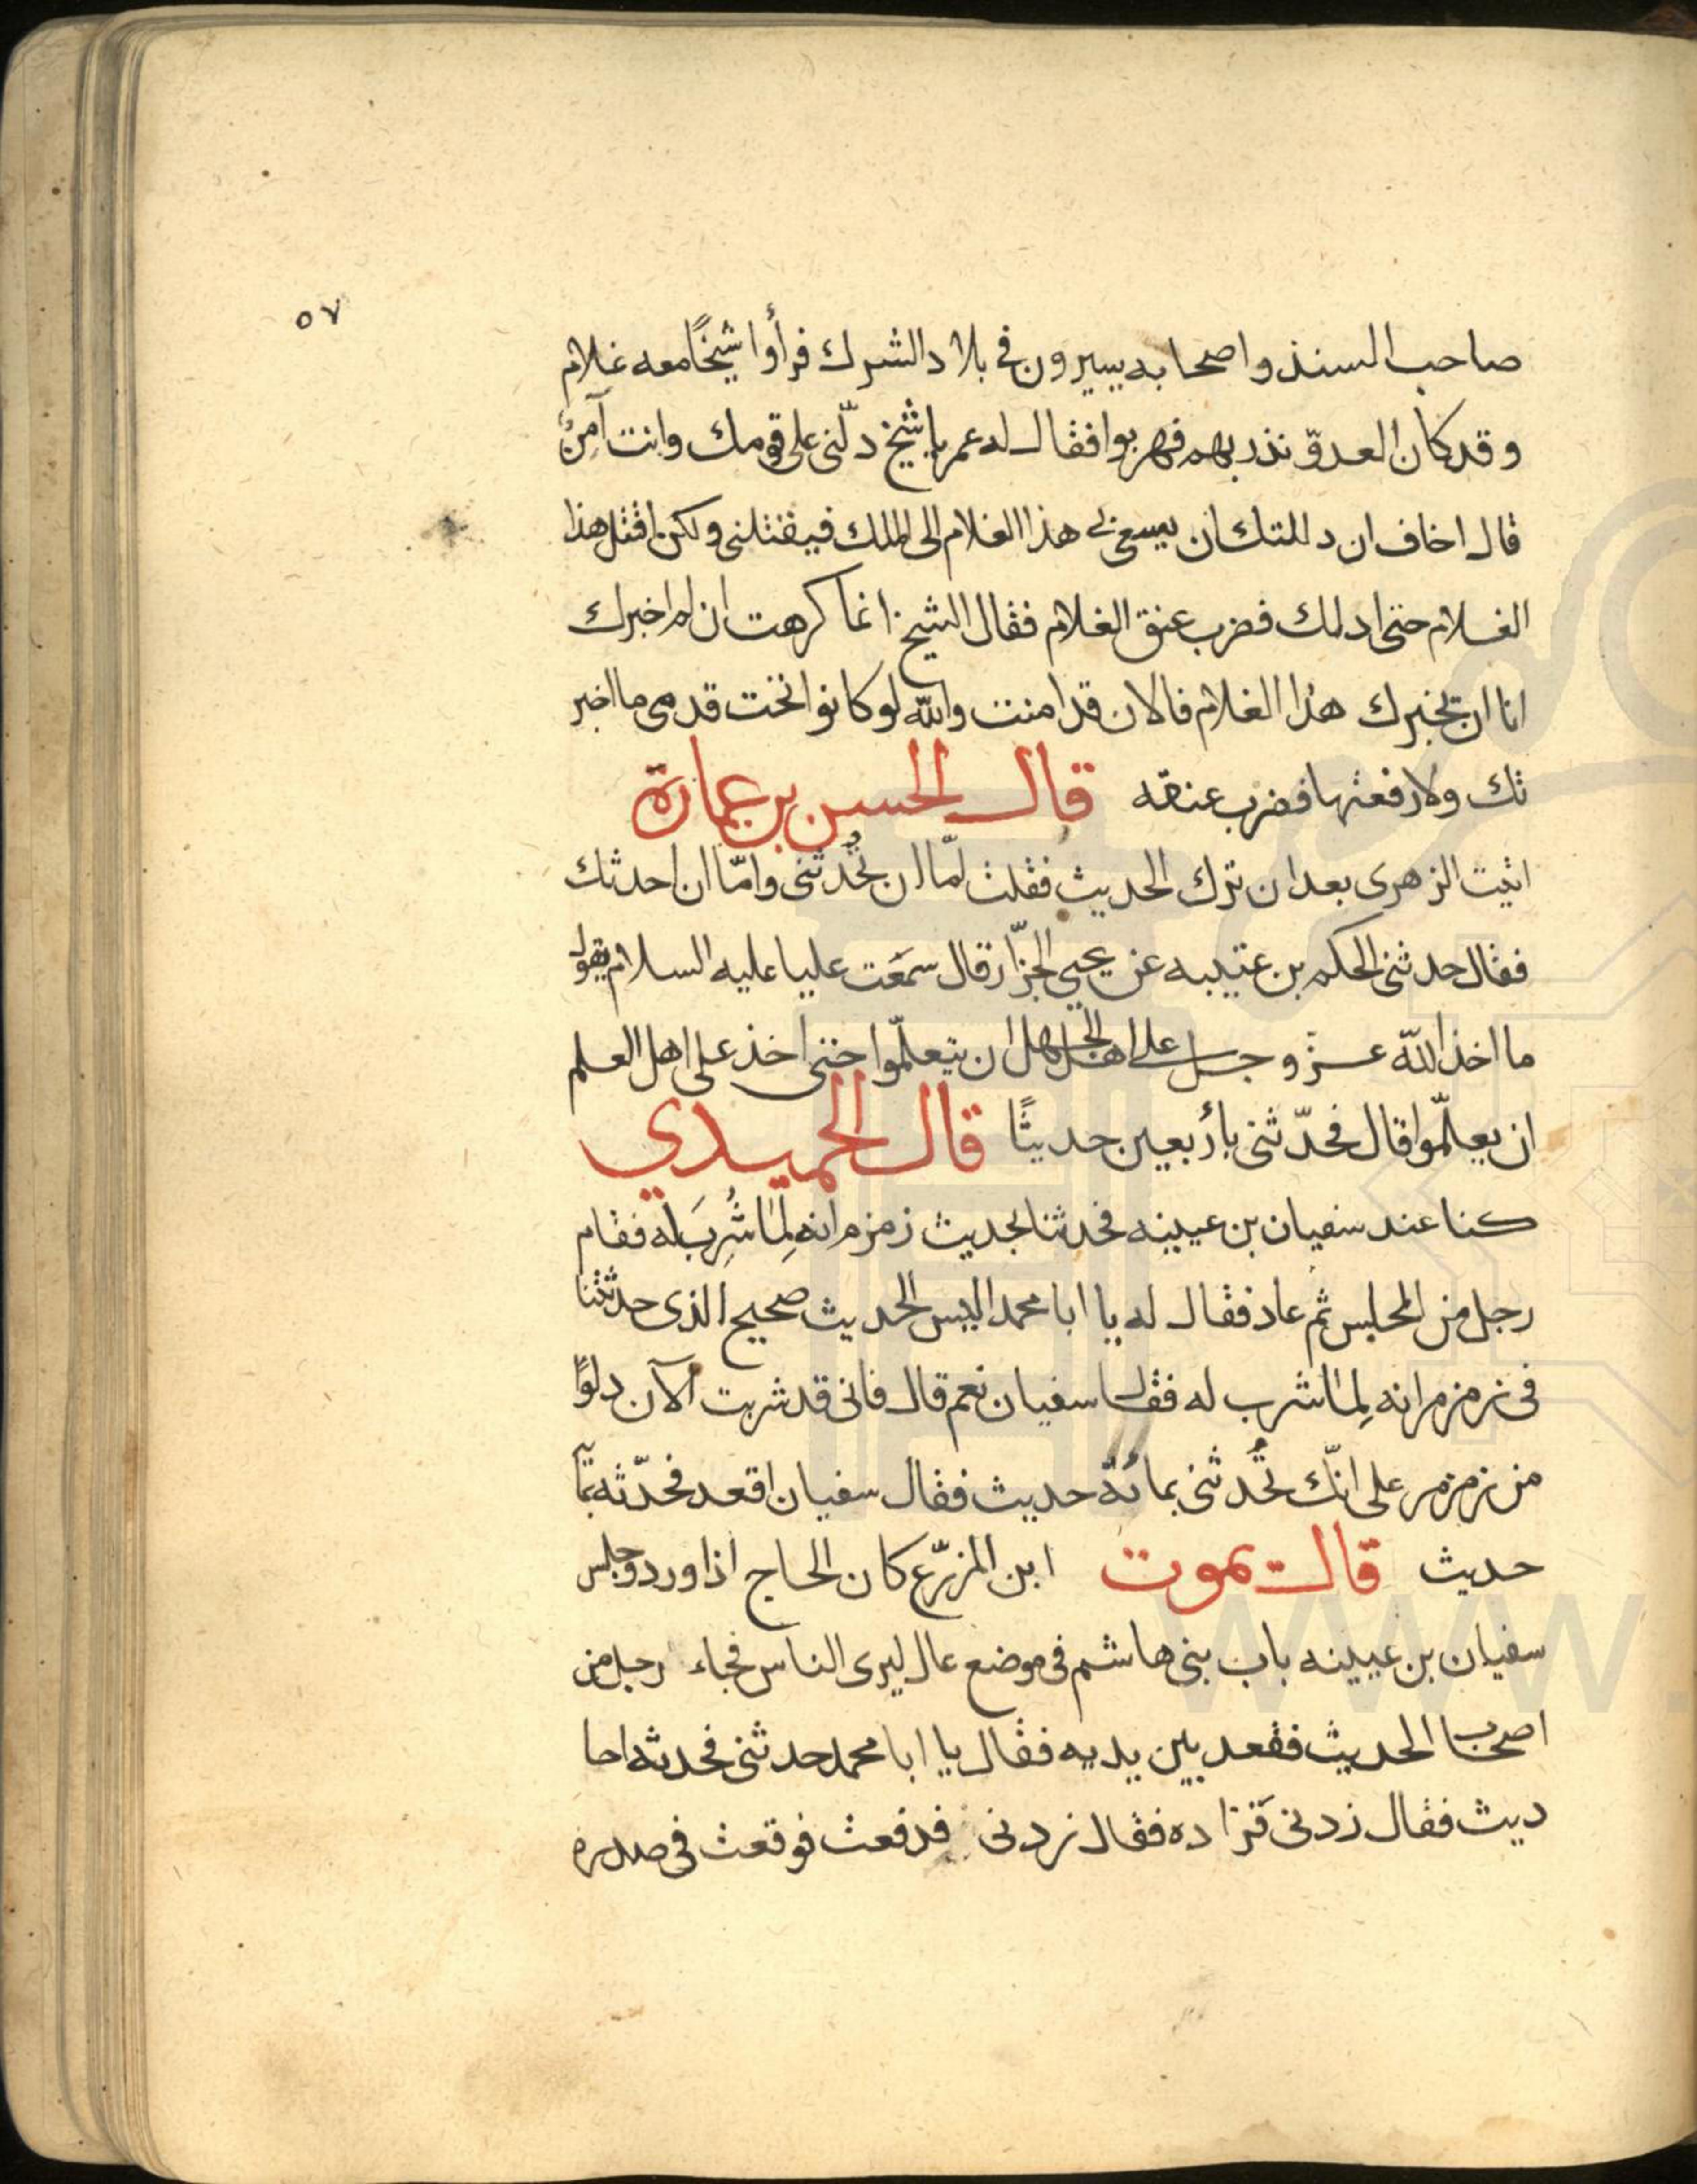 ٥٧
صاحب السند واصحابه يسيرون في بلاد الشرك فرأوا شيخًا معه غلام
وقد كان العدوّ نذر بهم فهربوا فقال له عمر يا شيخ دلّنى على قومك وانت آمِنٌ
قال اخاف ان دللتك ان يسعى بي هذا الغلام الى الملك فيقتلنى ولكن اقتل هذا
الغلام حتى ادلك فضرب عنق الغلام فقال الشيخ انما كرهت ان لم اخبرك
انا ان يخبرك هذا الغلام فالان قد امنت والله لو كانوا تحت قدمي ما اخبر
تك ولا رفعتها فضرب عنقه قال الحسن بن عمارة
اتيت الزهرى بعد ان ترك الحديث فقلت امّا ان تُحدثنى وامّا ان احدثك
فقال حدثنى الحكم بن عتيبه عن يحيى الجزّار قال سمَعت عليا عليه السلام يقول
ما اخذ الله عزّ وجل على اهل الجهل ان يتعلّموا حتى اخذ على اهل العلم
ان يعلّموا قال فحدّثنى بأربعين حديثًا قال الحميدي
كنا عند سفيان بن عيينه فحدثنا بحديث زمزم انه لِمَا شُرِبَ له فقام
رجل من المجلس ثم عاد فقال له يا ابا محمد اليس الحديث صحيح الذى حدثتنا
فى زمزم انه لِما شرب له فقال سفيان نعم قال فانى قد شربت الآن دلوًا
من زمزم على انّك تُحدثنى بمائة حديث فقال سفيان اقعد فحدّثه بمآئة
حديث قال يموت ابن المزرّع كان الحاج اذا ورد وجلس
سفيان بن عيينه باب بنى هاشم فى موضع عال ليرى الناس فجاء رجل من
اصحاب الحديث فقعد بين يديه فقال يا ابا محمد حدثنى فحدثه احا
ديث فقال زدنى فَزاده فقال زدنى فدفعت فوقعت فى صدره
www.